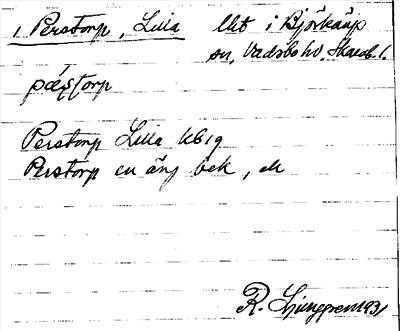 1 Perstorp, Lilla Uti i Björkäng
sn, Vadsbo hd. Skarab. l.
pæʂtorp
Perstorp Lilla KB 19
Perstorp en äng bek, dk
R. Ljunggren 1931